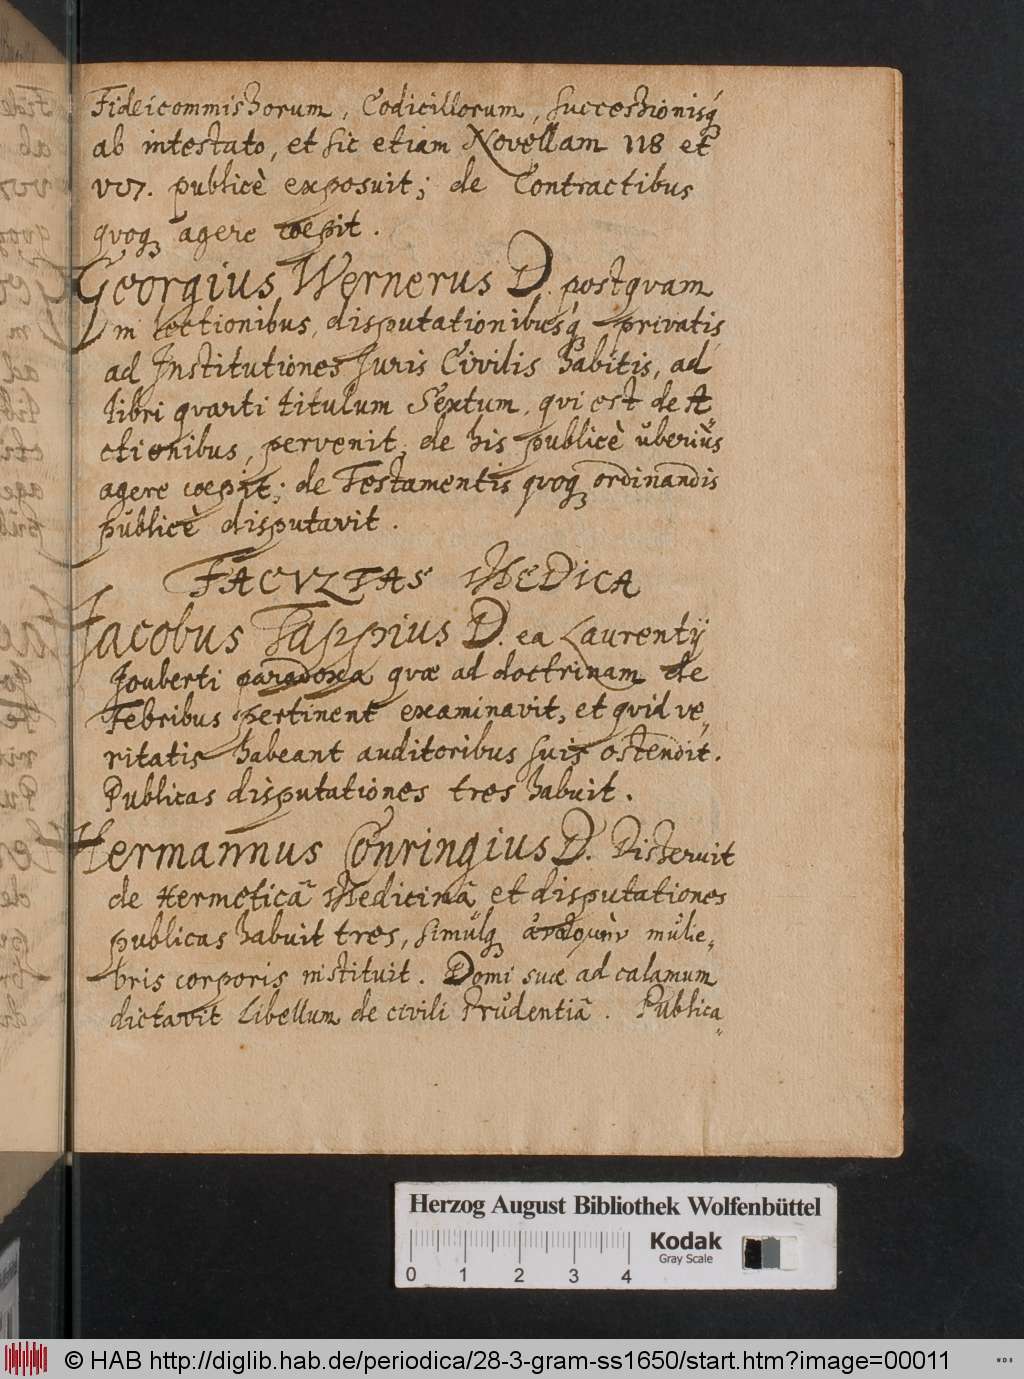 Fideicommissorum, Codicillorum, successionisq́
ab intestato, et sic etiam Novellam 118 et
publicè exposuit; de Contractibus
quoq agere coepit.
Georgius Wernerus D. postquam
in lectionibus, disputationibusq́ privatis
ad Institutiones Juris Civilis habitis, ad
libri quarti titulum Sextum, qui est de A
ctionibus, pervenit, de his publicè uberiùs
agere coepit; de Testamentis quoq ordinandis
publicè disputavit.
FACULTAS MEDICA
Jacobus Tappius D. ea Laurentij
Jouberti paradoxa quæ ad doctrinam de
Febribus pertinent examinavit, et quid ve„
ritatis habeant auditoribus suis ostendit.
Publicas disputationes tres habuit.
Hermannus Conringius D. Disseruit
de Hermeticâ Medicinâ et disputationes
publicas habuit tres, simulq mulie„
bris corporis instituit. Domi suæ ad calamum
dictavit Libellum de civili Prudentiâ. Publica„
Herzog August Bibliothek Wolfenbüttel
Kodak
Gray Scale
0 1 2 3 4
© HAB http://diglib.hab.de/periodica/28-3-gram-ss1650/start.htm?image=00011